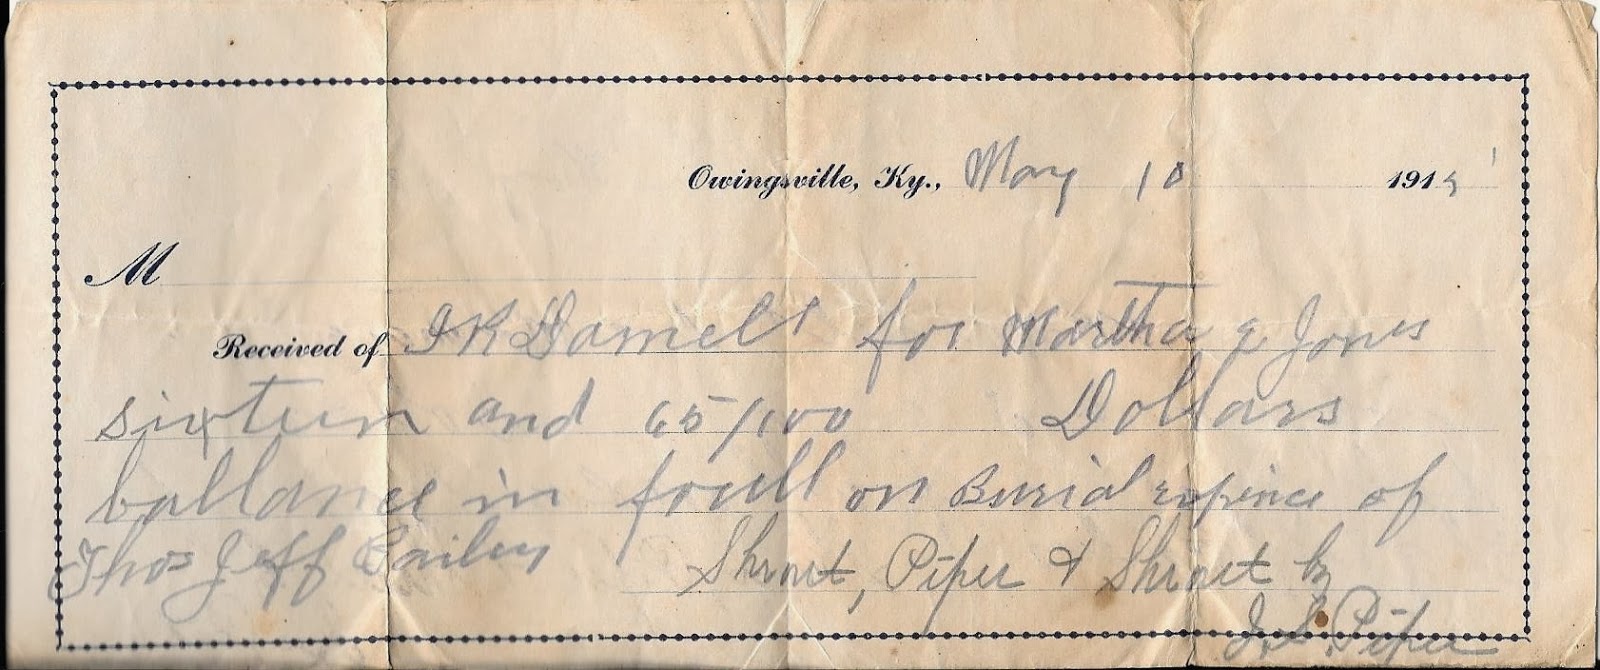 Owingsville, Ky., May 10 191
M
Received of J K Daniel for Martha J Jones
sixteen and 65/100 Dollars
ballance in full on Burial expince of
Thos Jeff Bailey Shrout, Piper & Shrout by
J. S. Piper